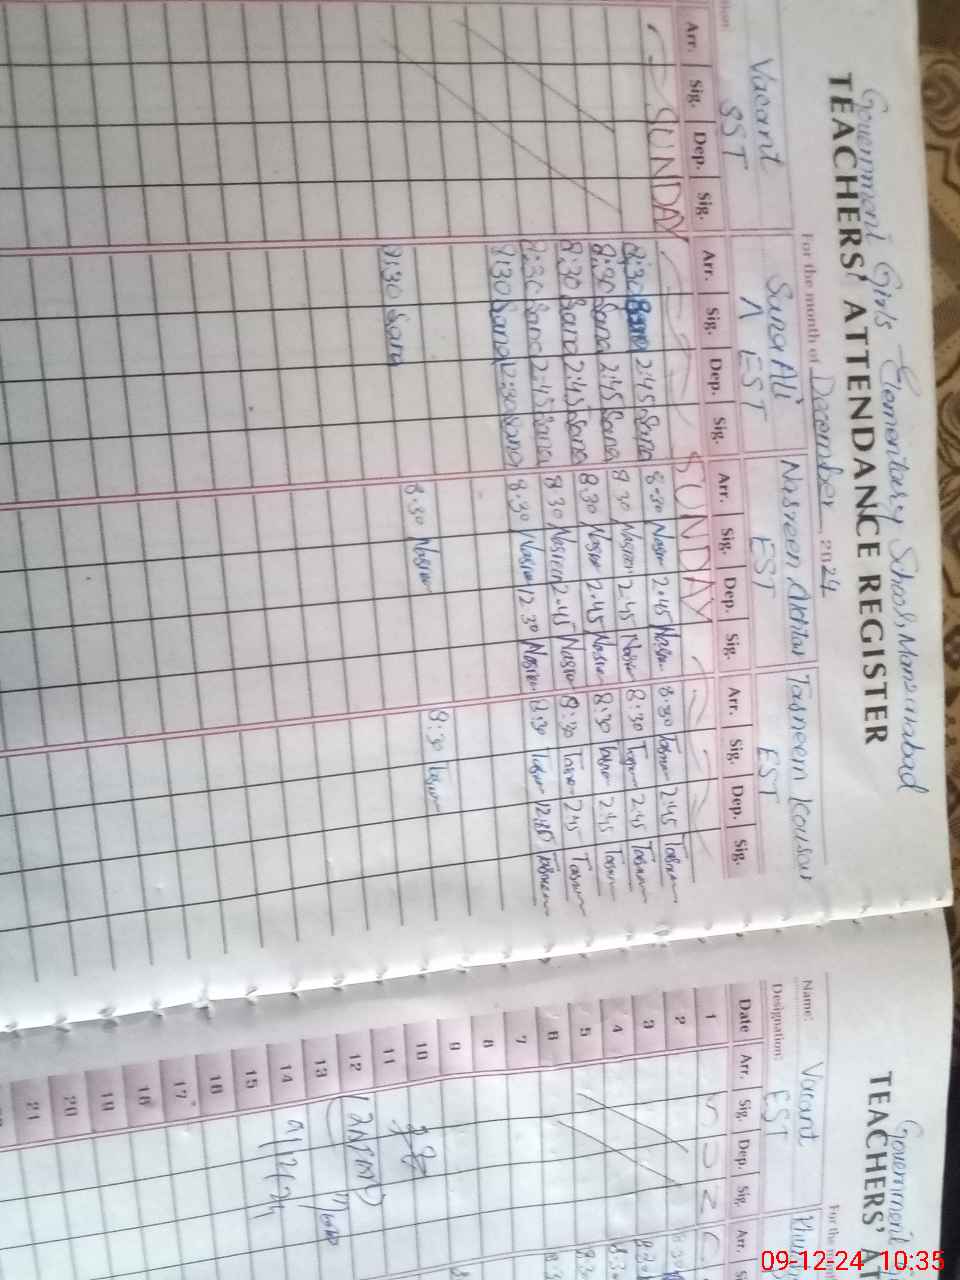 Government Girls Elementary School, Mansurabad
TEACHERS' ATTENDANCE REGISTER
For the month of December, 2024
Vacant Sana Ali Nasreen Akhtar Tasneem Kousar
SST EST EST EST
Arr. Sig. Dep. Sig. Arr. Sig. Dep. Sig. Arr. Sig. Dep. Sig. Arr. Sig. Dep. Sig.
SUNDAY SUNDAY
8:30 Sana 2:45 Sana 8:30 Nasreen 2:45 Nasreen 8:30 Tasneem 2:45 Tasneem
8:30 Sana 2:45 Sana 8:30 Nasreen 2:45 Nasreen 8:30 Tasneem 2:45 Tasneem
8:30 Sana 2:45 Sana 8:30 Nasreen 2:45 Nasreen 8:30 Tasneem 2:45 Tasneem
8:30 Sana 2:45 Sana 8:30 Nasreen 2:45 Nasreen 8:30 Tasneem 2:45 Tasneem
8:30 Sana 12:30 Sana 8:30 Nasreen 12:30 Nasreen 8:30 Tasneem 12:30 Tasneem
8:30 Sana 8:30 Nasreen 8:30 Tasneem
Government
TEACHERS' AT
For the m
Name: Vacant
Designation: EST
Date Arr. Sig. Dep. Sig. Arr. S
1 S U N
2
3
4
5
6
7
8
9
10
11
12
13
14 9/12/24
15
16
17
18
19
20
21
09-12-24 10:35